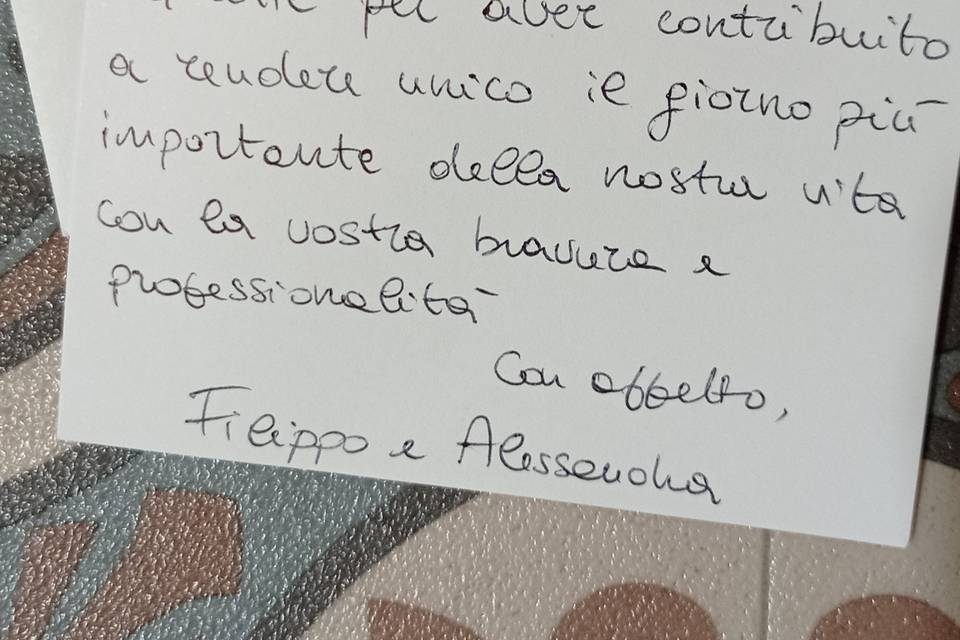 per aver contribuito
a rendere unico il giorno più
importante della nostra vita
con la vostra bravura e
professionalità
Con affetto,
Filippo e Alessandra